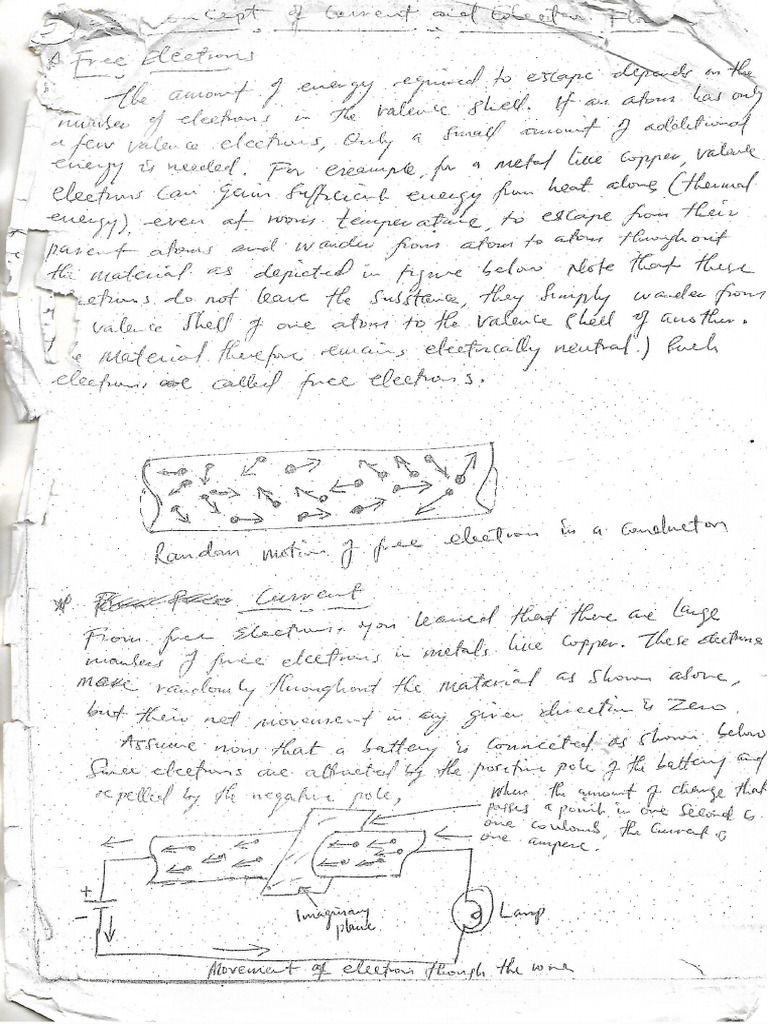 Concept of Current and Electron Flow
* Free Electrons
The amount of energy required to escape depends on the
number of electrons in the valence shell. If an atom has only
a few valence electrons, only a small amount of additional
energy is needed. For example, for a metal like copper, valence
electrons can gain sufficient energy from heat alone (thermal
energy), even at room temperature, to escape from their
parent atoms and wander from atom to atom throughout
the material as depicted in figure below. Note that these
electrons do not leave the substance, they simply wander from
valence shell of one atom to the valence shell of another.
material therefore remains electrically neutral.) Such
electrons are called free electrons.
Random motion of free electrons in a conductor
* Current
From free electrons, you learned that there are large
numbers of free electrons in metals like copper. These electrons
move randomly throughout the material as shown above,
but their net movement in any given direction is zero.
Assume now that a battery is connected as shown below
Since electrons are attracted by the positive pole of the battery and
repelled by the negative pole,
When the amount of charge that
passes a point in one second is
one coulomb, the current is
one ampere.
+
-
Imaginary
plane
Lamp
Movement of electrons through the wire